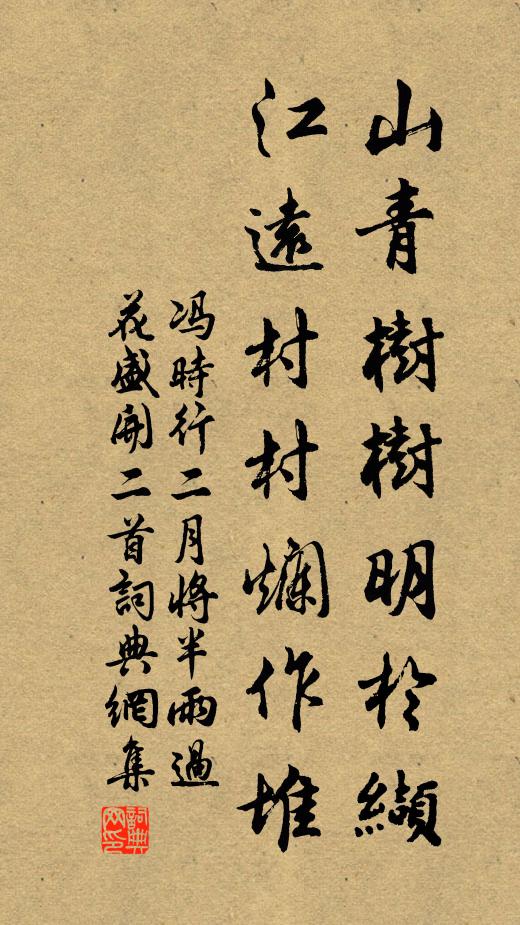 山青樹樹明於纈
江遠村村爛作堆
冯時行二月將半雨過
花盛開二首詞典網集
詞典网印